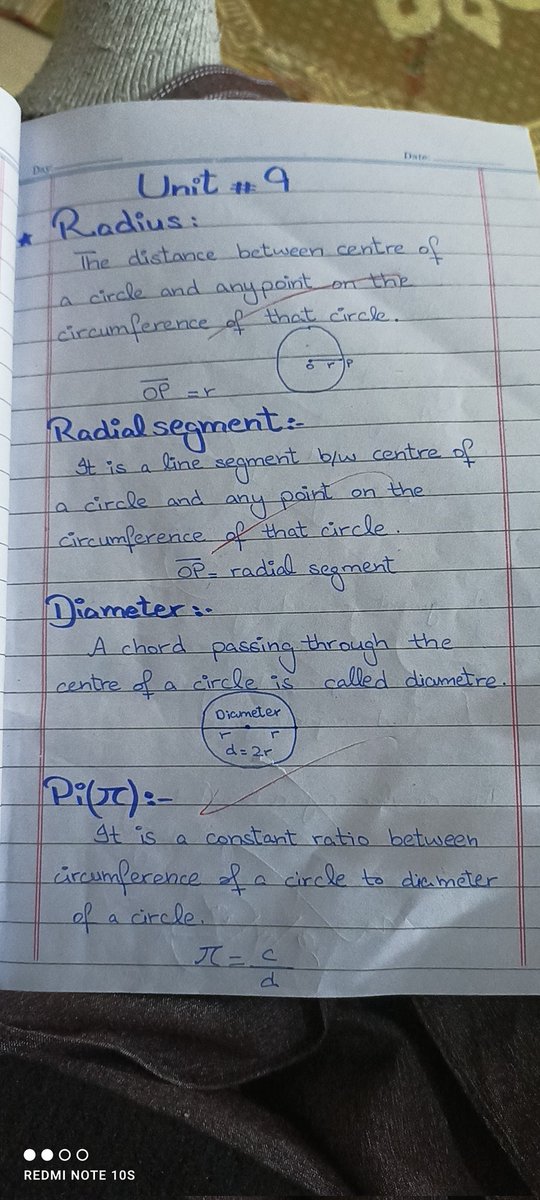 Day
Date:
Unit # 9
★ Radius:
The distance between centre of
a circle and any point on the
circumference of that circle.
o r P
OP = r
Radial segment:-
It is a line segment b/w centre of
a circle and any point on the
circumference of that circle.
OP = radial segment
Diameter:-
A chord passing through the
centre of a circle is called diametre.
Diameter
r r
d = 2r
Pi(π):-
It is a constant ratio between
circumference of a circle to diameter
of a circle.
π = c
d
REDMI NOTE 10S